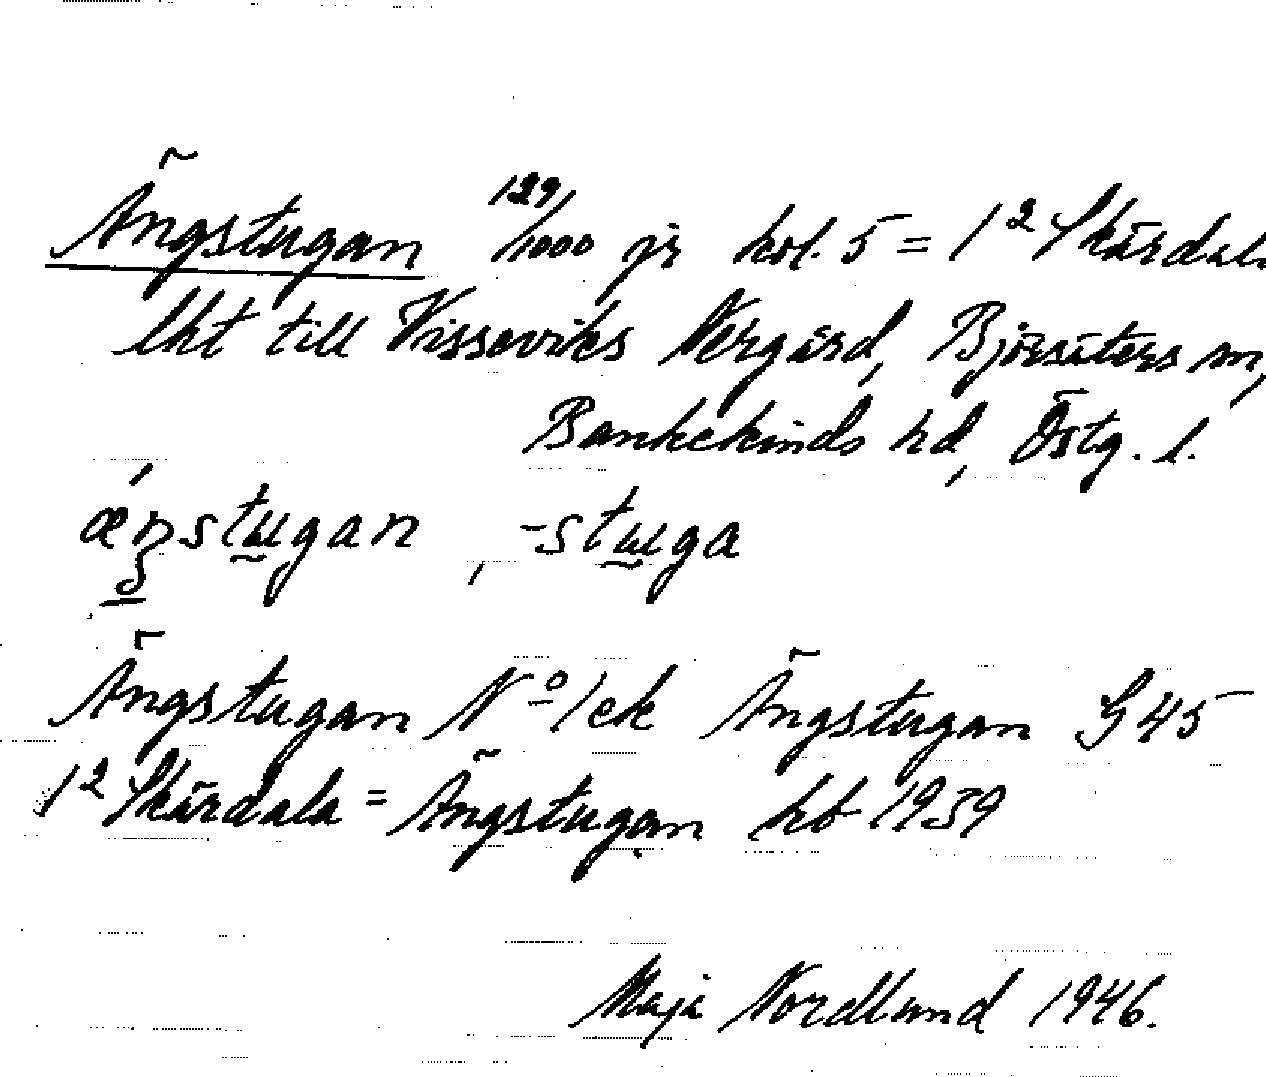 Ängstugan 129/1000 jr kol. 5 = 1² Skärdala
lht till Visseviks Nergård, Björsäters sn,
Bankekinds hd, Östg. l.
ængstugan, -stuga
Ängstugan Nº 1 ek Ängstugan G 45
1² Skärdala = Ängstugan hb 1939
Maja Nordlund 1946.